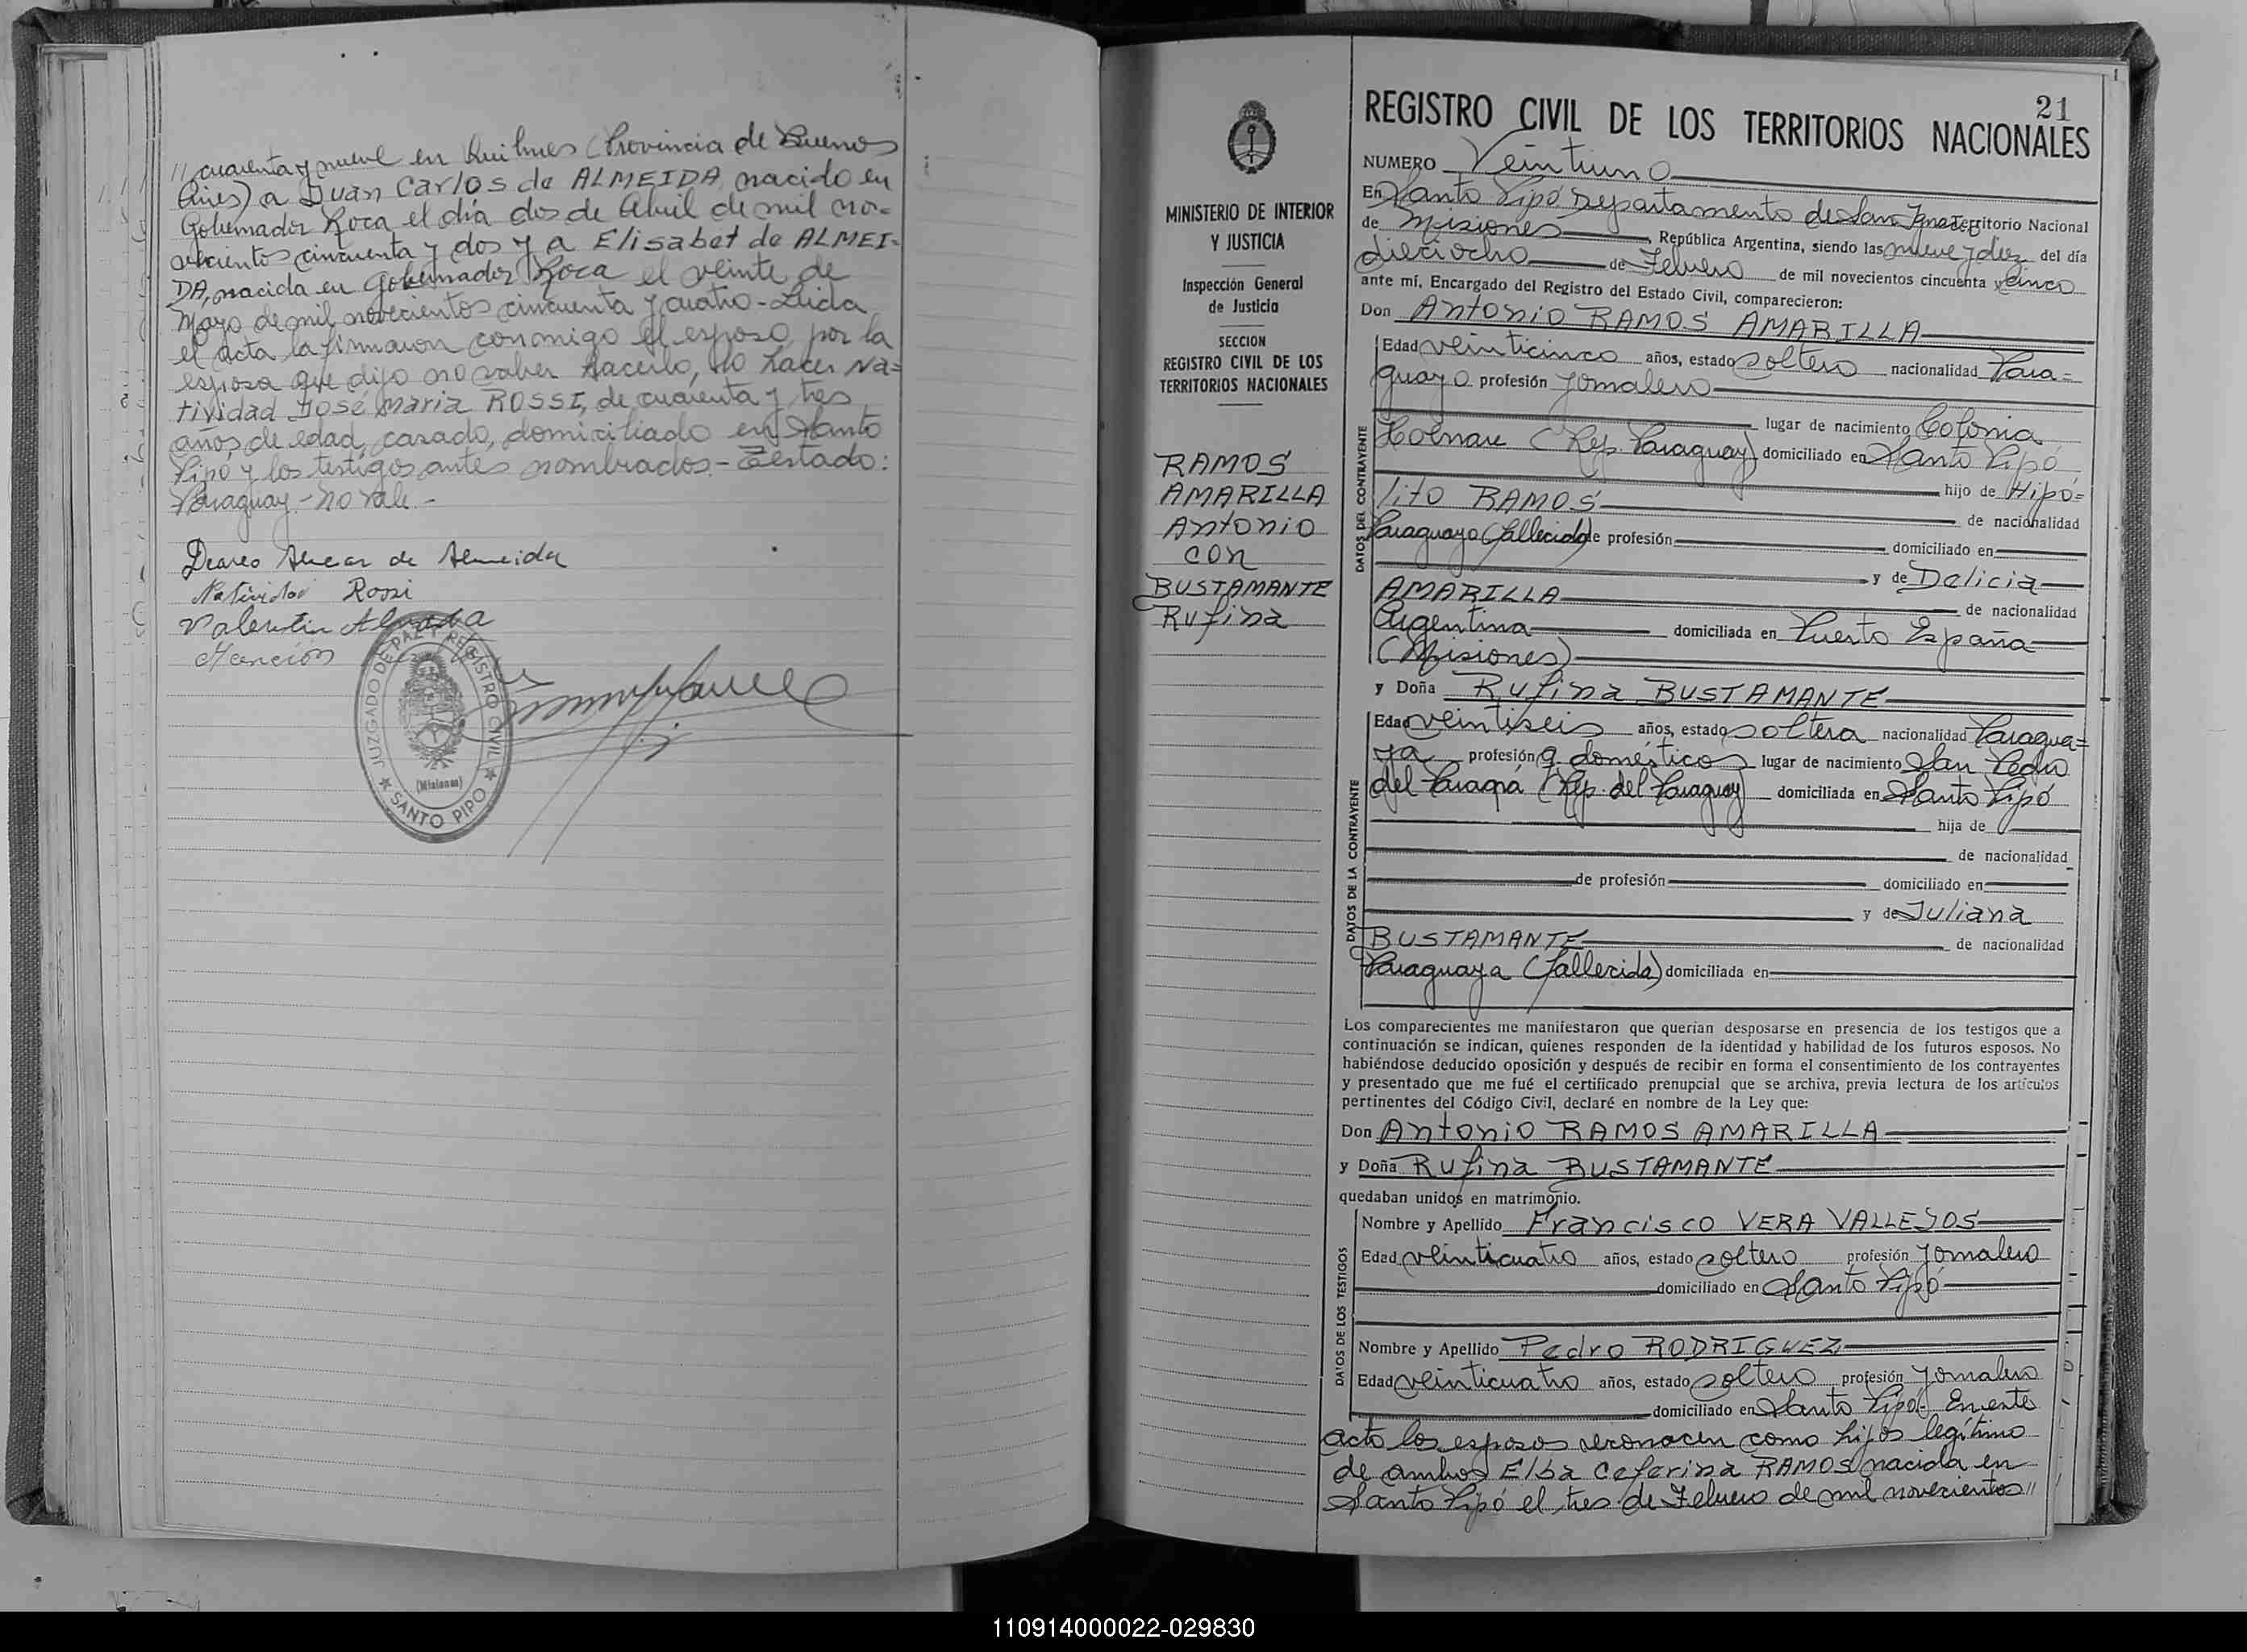 // cuarenta y nueve en Quilmes (Provincia de Buenos
Aires) a Juan Carlos de ALMEIDA, nacido en
Gobernador Roca el día dos de Abril de mil no-
vecientos cincuenta y dos y a Elisabet de ALMEI-
DA, nacida en Gobernador Roca el veinte de
Mayo de mil novecientos cincuenta y cuatro - Leida
el acta la firmaron conmigo el esposo, por la
esposa que dijo no saber hacerlo, lo hace Na=
tividad José María ROSSI, de cuarenta y tres
años de edad, casado, domiciliado en Santo
Pipó y los testigos antes nombrados.- Testado:
Paraguay - no vale.-
de Almeida
Natividad Rossi
Valentin
Asención
JUZGADO DE PAZ Y REGISTRO CIVIL
(Misiones)
★ SANTO PIPO ★
MINISTERIO DE INTERIOR
Y JUSTICIA
Inspección General
de Justicia
SECCION
REGISTRO CIVIL DE LOS
TERRITORIOS NACIONALES
RAMOS
AMARILLA
Antonio
con
BUSTAMANTE
Rufina
21
REGISTRO CIVIL DE LOS TERRITORIOS NACIONALES
NUMERO Veintiuno
En Santo Pipó Departamento de San Ignacio Territorio Nacional
de Misiones, República Argentina, siendo las nueve y diez del día
dieciocho de Febrero de mil novecientos cincuenta y cinco
ante mí, Encargado del Registro del Estado Civil, comparecieron:
Don Antonio RAMOS AMARILLA
DATOS DEL CONTRAYENTE
Edad veinticinco años, estado soltero nacionalidad Para=
guayo profesión jornalero
lugar de nacimiento Colonia
Hoenau (Rep. Paraguay) domiciliado en Santo Pipó
hijo de Hipó=
lito RAMOS
de nacionalidad
Paraguayo (fallecido) de profesión domiciliado en
y de Delicia
AMARILLA de nacionalidad
Argentina domiciliada en Puerto España
(Misiones)
y Doña Rufina BUSTAMANTE
DATOS DE LA CONTRAYENTE
Edad veintiseis años, estado soltera nacionalidad Paragua=
ya profesión q. domésticos lugar de nacimiento San Pedro
del Paraná (Rep. del Paraguay) domiciliada en Santo Pipó
hija de
de nacionalidad
de profesión domiciliado en
y de Juliana
BUSTAMANTE de nacionalidad
Paraguaya (fallecida) domiciliada en
Los comparecientes me manifestaron que querían desposarse en presencia de los testigos que a
continuación se indican, quienes responden de la identidad y habilidad de los futuros esposos. No
habiéndose deducido oposición y después de recibir en forma el consentimiento de los contrayentes
y presentado que me fué el certificado prenupcial que se archiva, previa lectura de los artículos
pertinentes del Código Civil, declaré en nombre de la Ley que:
Don Antonio RAMOS AMARILLA
y Doña Rufina BUSTAMANTE
quedaban unidos en matrimonio.
DATOS DE LOS TESTIGOS
Nombre y Apellido Francisco VERA VALLEJOS
Edad veinticuatro años, estado soltero profesión jornalero
domiciliado en Santo Pipó
Nombre y Apellido Pedro RODRIGUEZ
Edad veinticuatro años, estado soltero profesión jornalero
domiciliado en Santo Pipó.- En este
acto los esposos reconocen como hijos legítimo
de ambos Elba Ceferina RAMOS nacida en
Santo Pipó el tres de Febrero de mil novecientos //
110914000022-029830